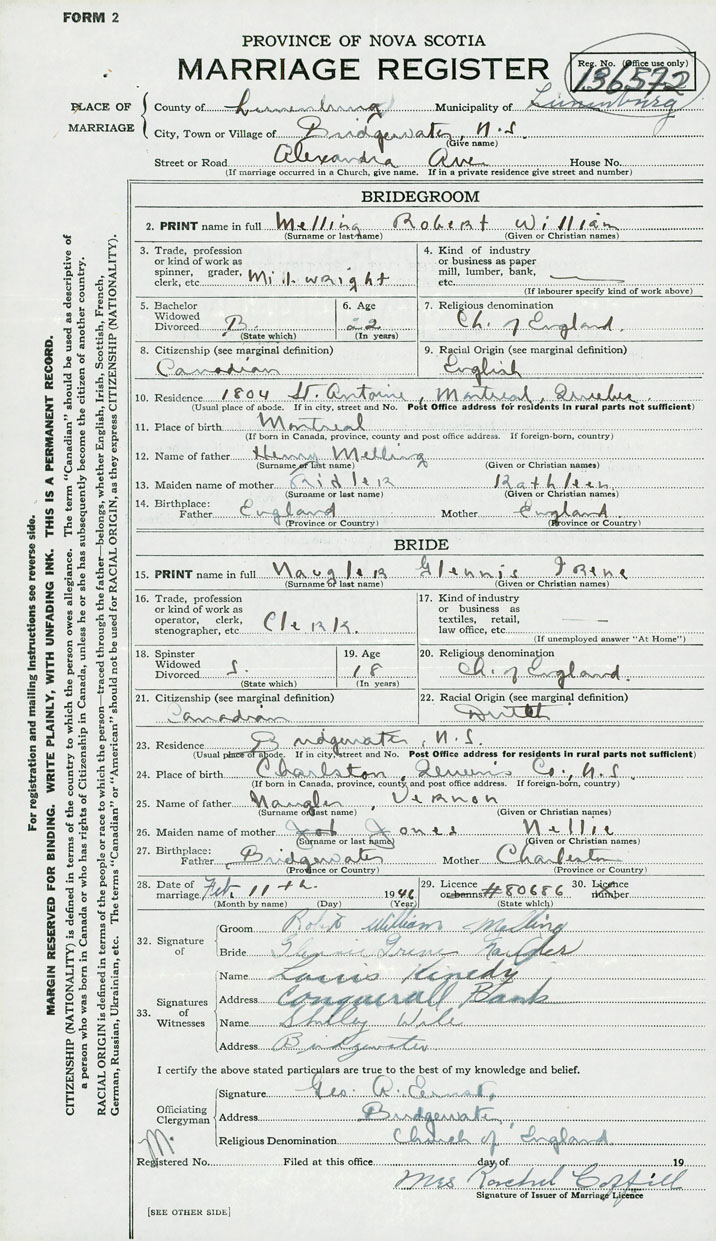 FORM 2
PROVINCE OF NOVA SCOTIA
MARRIAGE REGISTER
Reg. No. (Office use only)
136572
PLACE OF MARRIAGE
County of Lunenburg Municipality of Lunenburg
City, Town or Village of Bridgewater, N.S.
(Give name)
Street or Road Alexandra Ave House No.
(If marriage occurred in a Church, give name. If in a private residence give street and number)
BRIDEGROOM
2. PRINT name in full Melling Robert William
(Surname or last name) (Given or Christian names)
3. Trade, profession or kind of work as spinner, grader, clerk, etc. Millwright
4. Kind of industry or business as paper mill, lumber, bank, etc. —
(If labourer specify kind of work above)
5. Bachelor Widowed Divorced B.
(State which)
6. Age 22
(In years)
7. Religious denomination Ch. of England.
8. Citizenship (see marginal definition) Canadian
9. Racial Origin (see marginal definition) English
10. Residence 1804 St. Antoine, Montreal, Quebec.
(Usual place of abode. If in city, street and No. Post Office address for residents in rural parts not sufficient)
11. Place of birth Montreal
(If born in Canada, province, county and post office address. If foreign-born, country)
12. Name of father Henry Melling
(Surname or last name) (Given or Christian names)
13. Maiden name of mother Kathleen
(Surname or last name) (Given or Christian names)
14. Birthplace: Father England Mother England.
(Province or Country) (Province or Country)
BRIDE
15. PRINT name in full Naugler Glennis Irene
(Surname or last name) (Given or Christian names)
16. Trade, profession or kind of work as operator, clerk, stenographer, etc. Clerk.
17. Kind of industry or business as textiles, retail, law office, etc. —
(If unemployed answer "At Home")
18. Spinster Widowed Divorced S.
(State which)
19. Age 18
(In years)
20. Religious denomination Ch. of England.
21. Citizenship (see marginal definition) Canadian
22. Racial Origin (see marginal definition) Dutch
23. Residence Bridgewater, N.S.
(Usual place of abode. If in city, street and No. Post Office address for residents in rural parts not sufficient)
24. Place of birth Charlston, Queens Co., N.S.
(If born in Canada, province, county and post office address. If foreign-born, country)
25. Name of father Naugler, Vernon
(Surname or last name) (Given or Christian names)
26. Maiden name of mother Jones Nellie
(Surname or last name) (Given or Christian names)
27. Birthplace: Father Bridgewater Mother Charleston
(Province or Country) (Province or Country)
28. Date of marriage Feb. 11th. 1946
(Month by name) (Day) (Year)
29. Licence or banns #80686
(State which)
30. Licence number
32. Signature of
Groom Robt William Melling
Bride Glennis Irene Naugler
33. Signatures of Witnesses
Name Louis Kinedy
Address Conquerall Bank
Name Shilley Wile
Address Bridgewater
I certify the above stated particulars are true to the best of my knowledge and belief.
Officiating Clergyman
Signature Geo. A. Ernst.
Address Bridgewater,
Religious Denomination Church of England
M.
Registered No. Filed at this office day of 19
Mrs
Signature of Issuer of Marriage Licence
[SEE OTHER SIDE]
For registration and mailing instructions see reverse side.
MARGIN RESERVED FOR BINDING. WRITE PLAINLY, WITH UNFADING INK. THIS IS A PERMANENT RECORD.
CITIZENSHIP (NATIONALITY) is defined in terms of the country to which the person owes allegiance. The term "Canadian" should be used as descriptive of
a person who was born in Canada or who has rights of Citizenship in Canada, unless he or she has subsequently become the citizen of another country.
RACIAL ORIGIN is defined in terms of the people or race to which the person—traced through the father—belongs, whether English, Irish, Scottish, French,
German, Russian, Ukrainian, etc. The terms "Canadian" or "American" should not be used for RACIAL ORIGIN, as they express CITIZENSHIP (NATIONALITY).